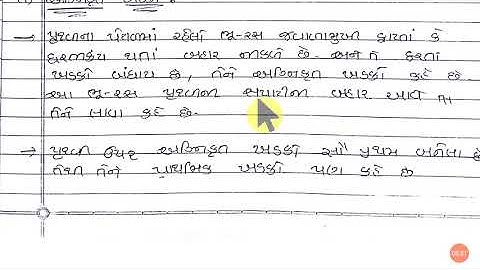 અગ્નિકૃત ખડકો :
→ પૃથ્વીના પેટાળમાં રહેલો ભૂ-રસ જ્વાળામુખી ફાટતાં કે
ધરતીકંપ થતાં બહાર નીકળે છે. અને તે ઠરતાં
ખડકો બંધાય છે, તેને અગ્નિકૃત ખડકો કહે છે
આ ભૂ-રસ પૃથ્વીની સપાટીની બહાર આવે
તેને લાવા કહે છે.
→ પૃથ્વી ઉપર અગ્નિકૃત ખડકો સૌ પ્રથમ બનેલા છે
તેથી તેને પ્રાથમિક ખડકો પણ કહે છે